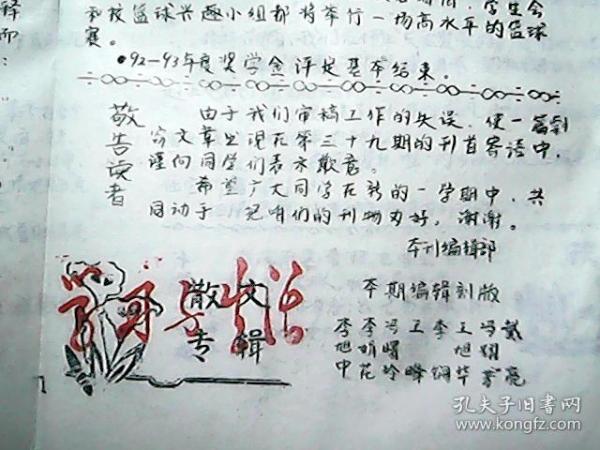 和校篮球兴趣小组都将举行一场高水平的篮球
赛。
•92-93年度奖学金评定基本结束。
敬告读者
由于我们审稿工作的失误,使一篇剽
窃文章出现在第三十九期的刊首寄语中,
谨向同学们表示歉意。
希望广大同学在新的一学期中,共
同动手 把咱们的刊物办好。谢谢。
本刊编辑部
散文
专辑
本期编辑刻版
李旭中
李昕花
冯曙玲
王峰
李娴
王旭华
孔夫子旧书网
www.kongfz.com